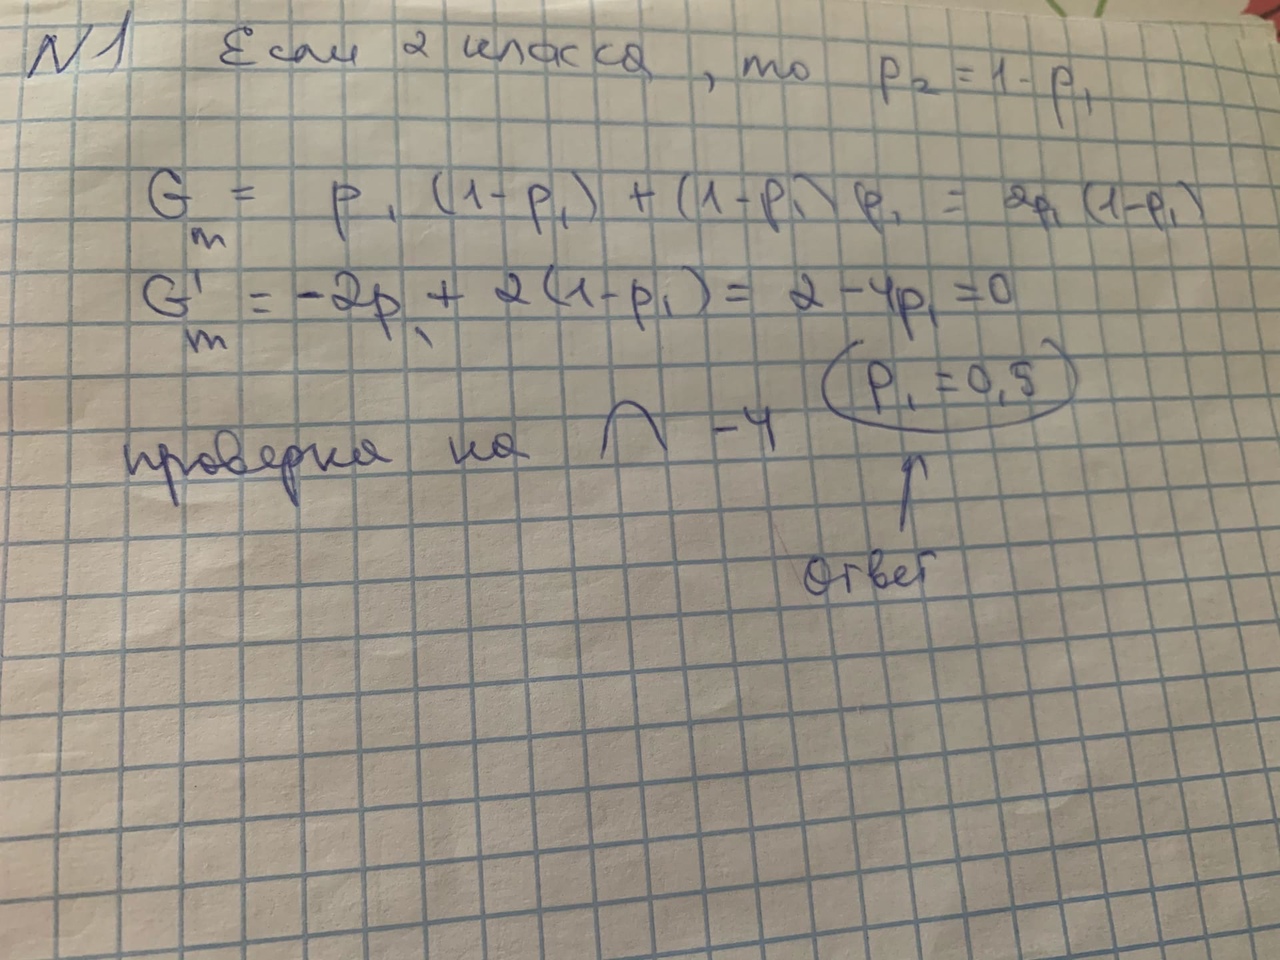 N1 Если 2 класса, то p₂ = 1 - p₁
Gₘ = p₁ (1-p₁) + (1-p₁) p₁ = 2p₁ (1-p₁)
G'ₘ = -2p₁ + 2(1-p₁) = 2 - 4p₁ = 0
p₁ = 0,5
проверка на ∩ -4
ответ